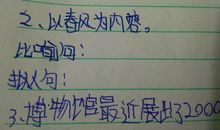 2、以春风为内容。
比喻句：
拟人句：
3、博物馆最近展出了2000